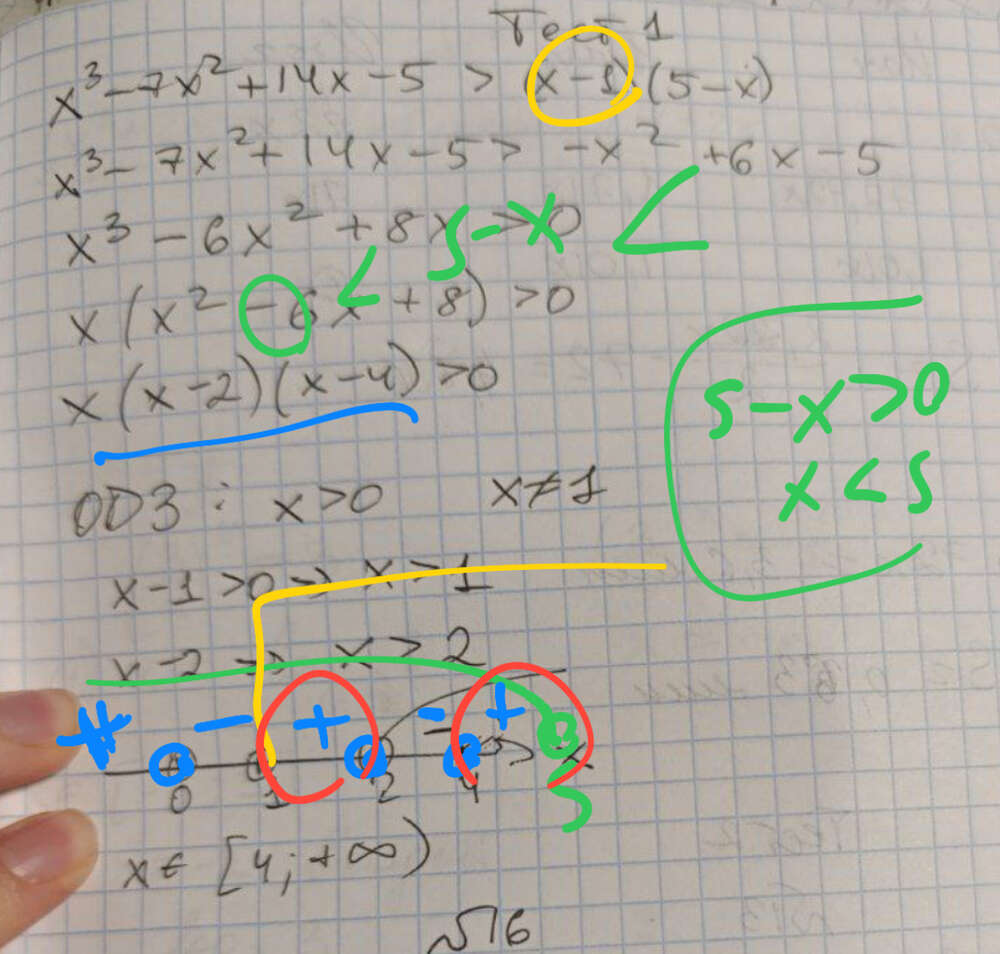 Тест 1
x³ - 7x² + 14x - 5 > (x - 1)·(5 - x)
x³ - 7x² + 14x - 5 > -x² + 6x - 5
x³ - 6x² + 8x > 0
5 - x <
x(x² - 6x + 8) > 0
<
x(x - 2)(x - 4) > 0
5 - x > 0
x < 5
ОДЗ: x > 0 x ≠ 1
x - 1 > 0 → x > 1
x - 2 → x > 2
- + - +
0 1 2 4 5 x
x ∈ [4; +∞)
√16